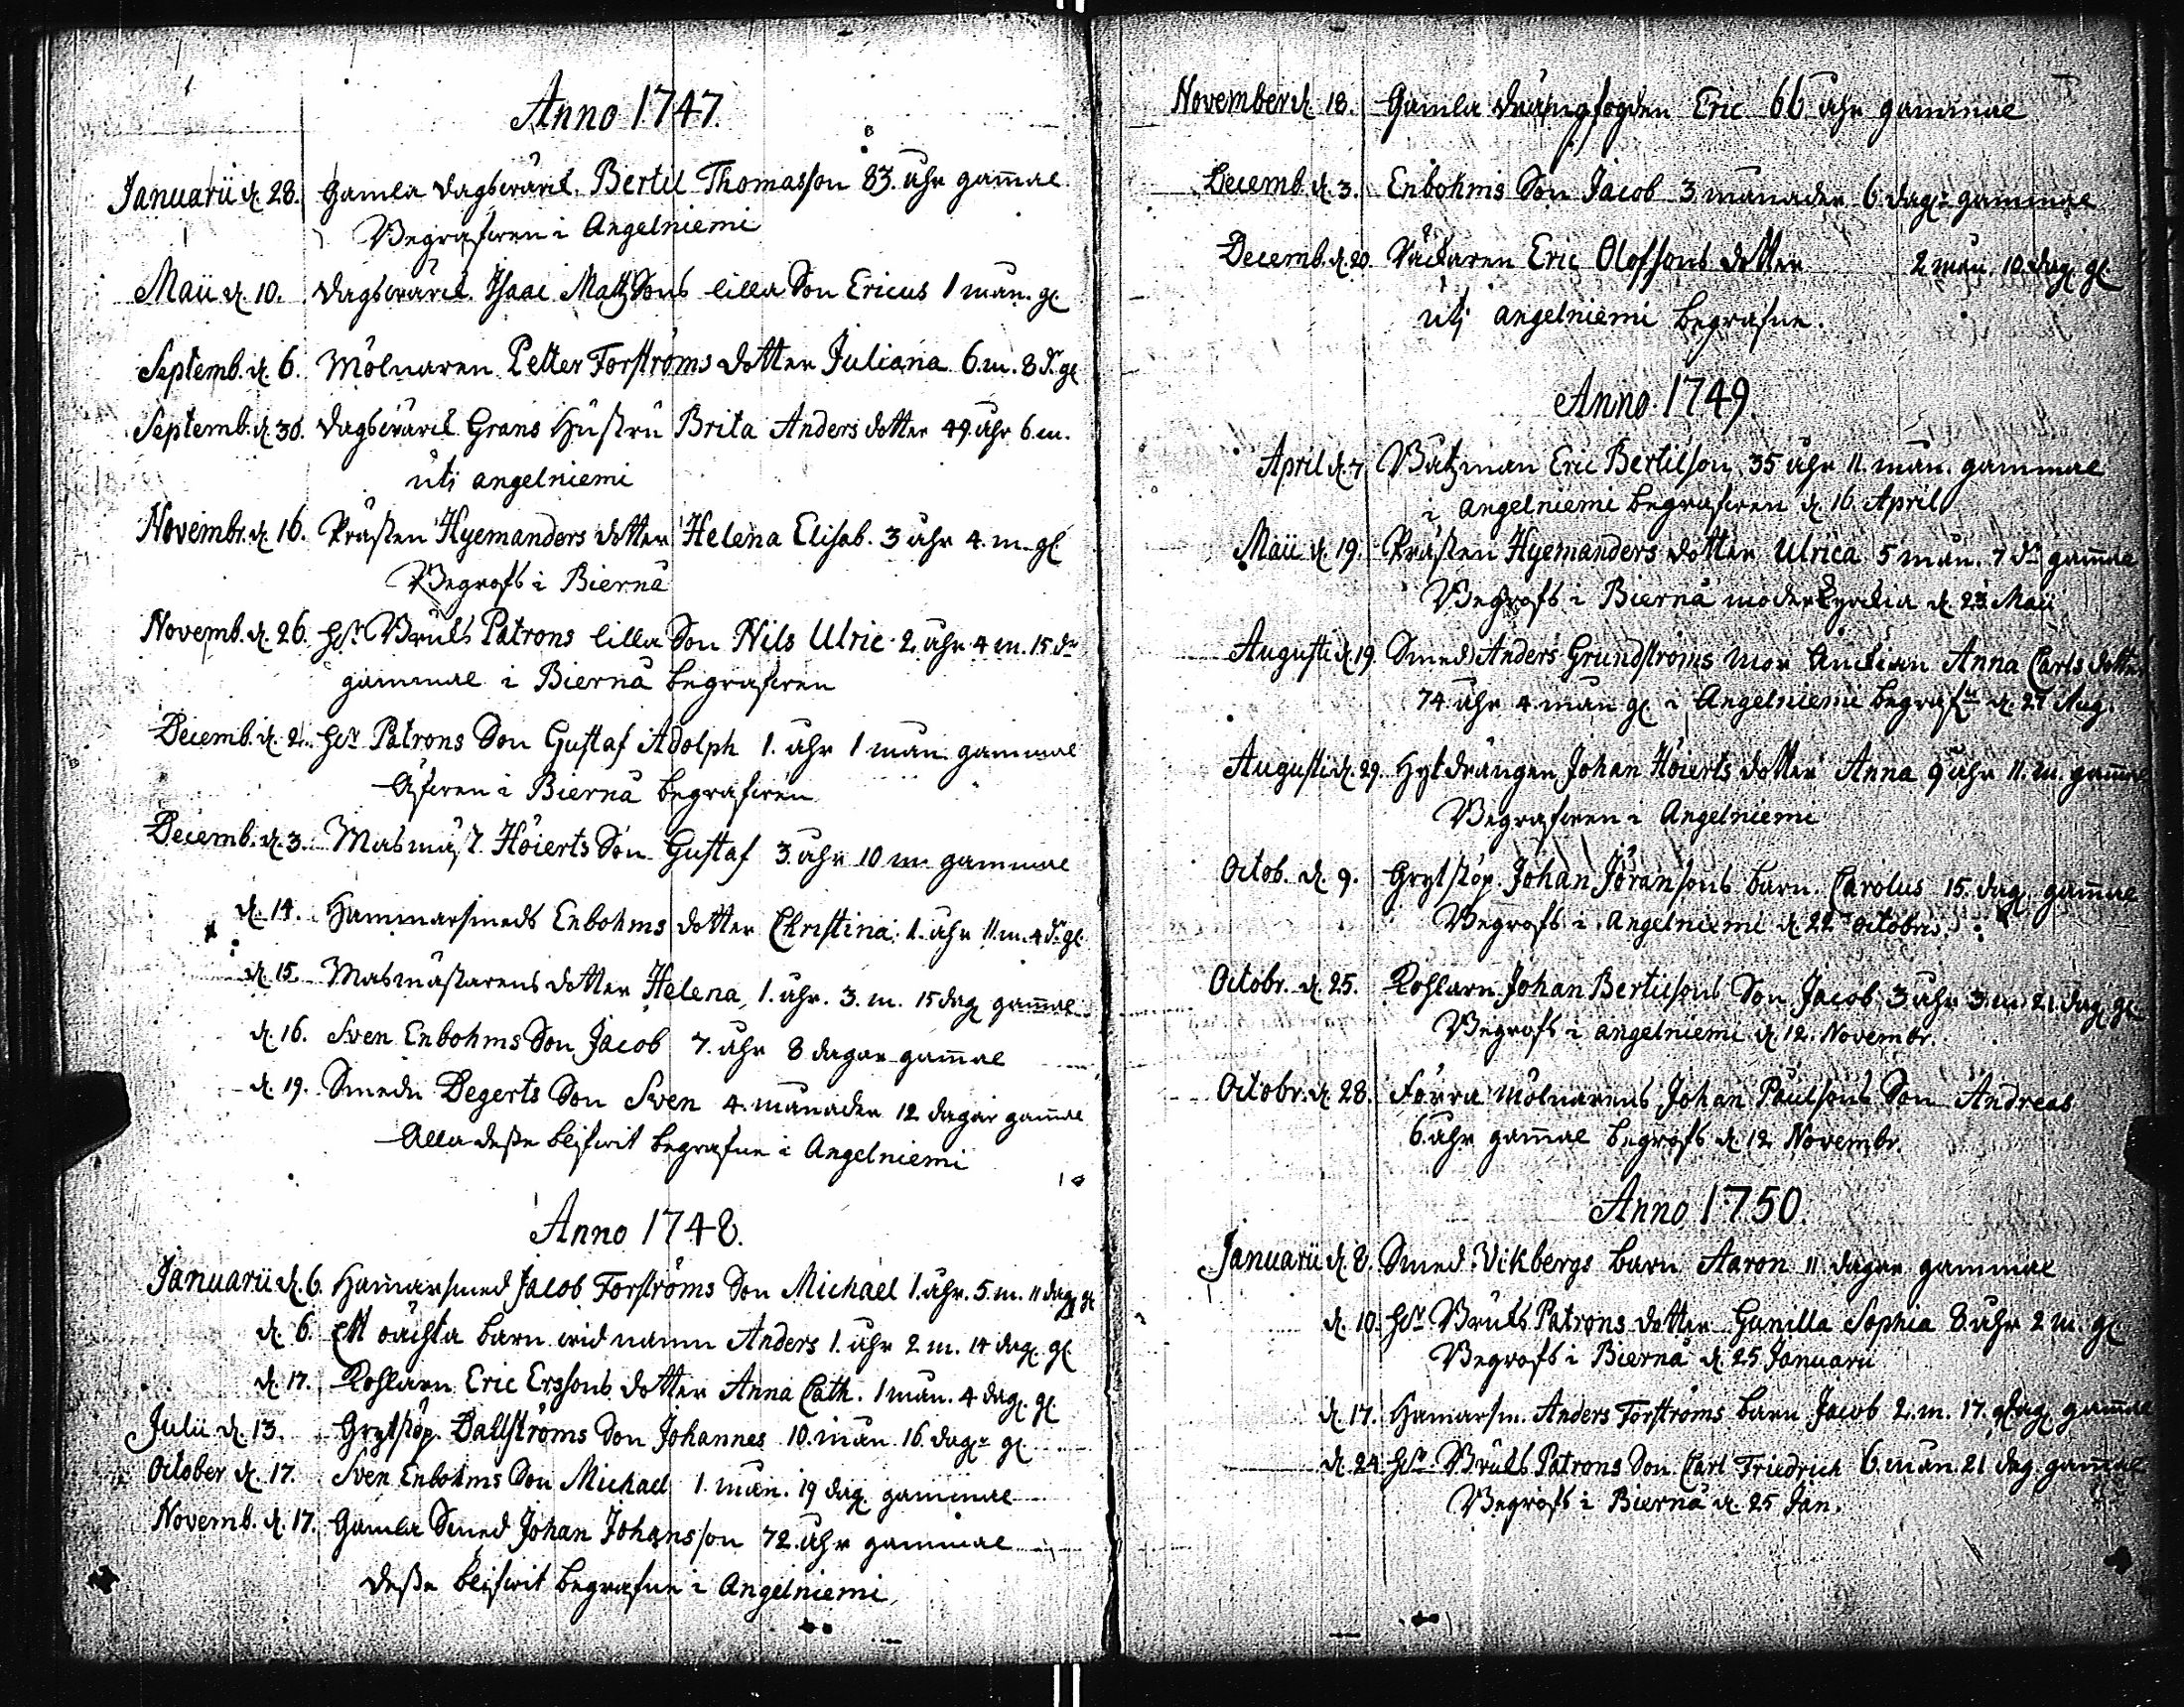 Anno 1747.
Januarii d. 28. Gamla dagswärk. Bertil Thomasson 83. åhr gam̄al
Begrafwen i Angelniemi
Maii d. 10. dagswärk. Isaac Mattsons lilla Son Ericus 1 mån. gl.
Septemb. d. 6. Mölnaren Petter Forströms dotter Juliana 6. m. 8 dr gl
Septemb. d. 30. dagswärk. Grans Hustru Brita Anders dotter 49 åhr 6. m.
uti angelniemi
Novembr. d. 16. Prästen Hyemanders dotter Helena Elisab. 3 åhr 4. m. gl
Begrofs i Bierna
Novemb. d. 26. Hr Bruks Patrons lilla Son Nils Ulric 2 åhr 4 m. 15 dr
gammal i Bierna begrafwen
Decemb. d. 2. Hr Patrons Son Gustaf Adolph 1. åhr 1 mån gammal
Äfwen i Bierna begrafwen
Decemb. d. 3. Masmäst. Höierts Son Gustaf 3 åhr 10 m gammal
d. 14. Hammarsmeds Enbohms dotter Christina 1. åhr 11 m. 4 dr gl.
d. 15. Masmästarens dotter Helena 1. åhr. 3. m. 15 dag gam̄al
d. 16. Sven Enbohms Son Jacob 7. åhr 8 dagar gam̄al
d. 19. Smeden Degerts Son Sven 4. månader 12 dagar gam̄al
Alla desse blifwit begrafne i Angelniemi
Anno 1748.
Januarii d. 6. Ham̄arsmed Jacob Forströms Son Michael 1. åhr. 5. m. 11 dag gl
d. 6. Ett oächta barn wid namn Anders 1. åhr 2 m. 14 dag. gl
d. 17. Kohlarn Eric Erssons dotter Anna Cath. 1 mån. 4 dag. gl.
Julii d. 13. Grytstöp. Dallströms Son Johannes 10. mån 16. dagr gl.
October d. 17. Sven Enbohms Son Michael 1. mån. 19 dag. gammal
Novemb. d. 17. Gamla Smed Johan Johansson 72. åhr gammal
desse blifwit begrafne i Angelniemi
November d. 18. Gamla drängfogden Eric 66 åhr gammal
Decemb. d. 3. Enbohms Son Jacob 3 månader 6 dagr gammal
Decemb. d. 20. Eric Olofsons dotter 2 mån. 10. dag. gl
uti angelniemi begrafne.
Anno 1749.
April d. 7 Båtzman Eric Bertilson 35 åhr 11. mån. gammal
i angelniemi begrafwen d. 16 April
Maii d. 19. Prästen Hyemanders dotter Ulrica 5 mån. 7 dr gam̄al
Begrofs i Bierna moderkyrkia d. 23. Maii
Augusti d. 19. Smed Anders Grundströms mor Änckian Anna Carls dotter
74 åhr 4 mån gl. i Angelniemi begrafn d. 27 Aug.
Augusti d. 29. Hytdrängen Johan Höierts dotter Anna 9 åhr 11. m. gam̄al
Begrafwen i Angelniemi
Octob. d. 9. Grytstöp. Johan Jöransons barn. Carolus 15. dag. gam̄al
Begrofs i Angelniemi d. 22 octobris.
Octobr. d. 25. Kohlarn Johan Bertilsons Son Jacob 3 åhr 3. m. 21. dag. gl.
Begrofs i angelniemi d. 12. Novembr.
Octobr. d. 28. Förra Mölnarens Johan Paulsons Son Andreas
6. åhr gam̄al begrofs d. 12. Novembr.
Anno 1750.
Januarii d. 8. Smed Vikbergs barn Aaron 11 dagar gammal
d. 10. Hr Bruks Patrons dotter Gunilla Sophia 8. åhr 2 m. gl
Begrofs i Bierna d. 25 Januarii
d. 17. Ham̄arsm. Anders Forströms barn Jacob 2. m. 17. dag. gam̄al
d. 24. Hr Bruks Patrons Son Carl Friedrich 6. mån 21 dag gam̄al
Begrofs i Bierna d. 25 Jan.